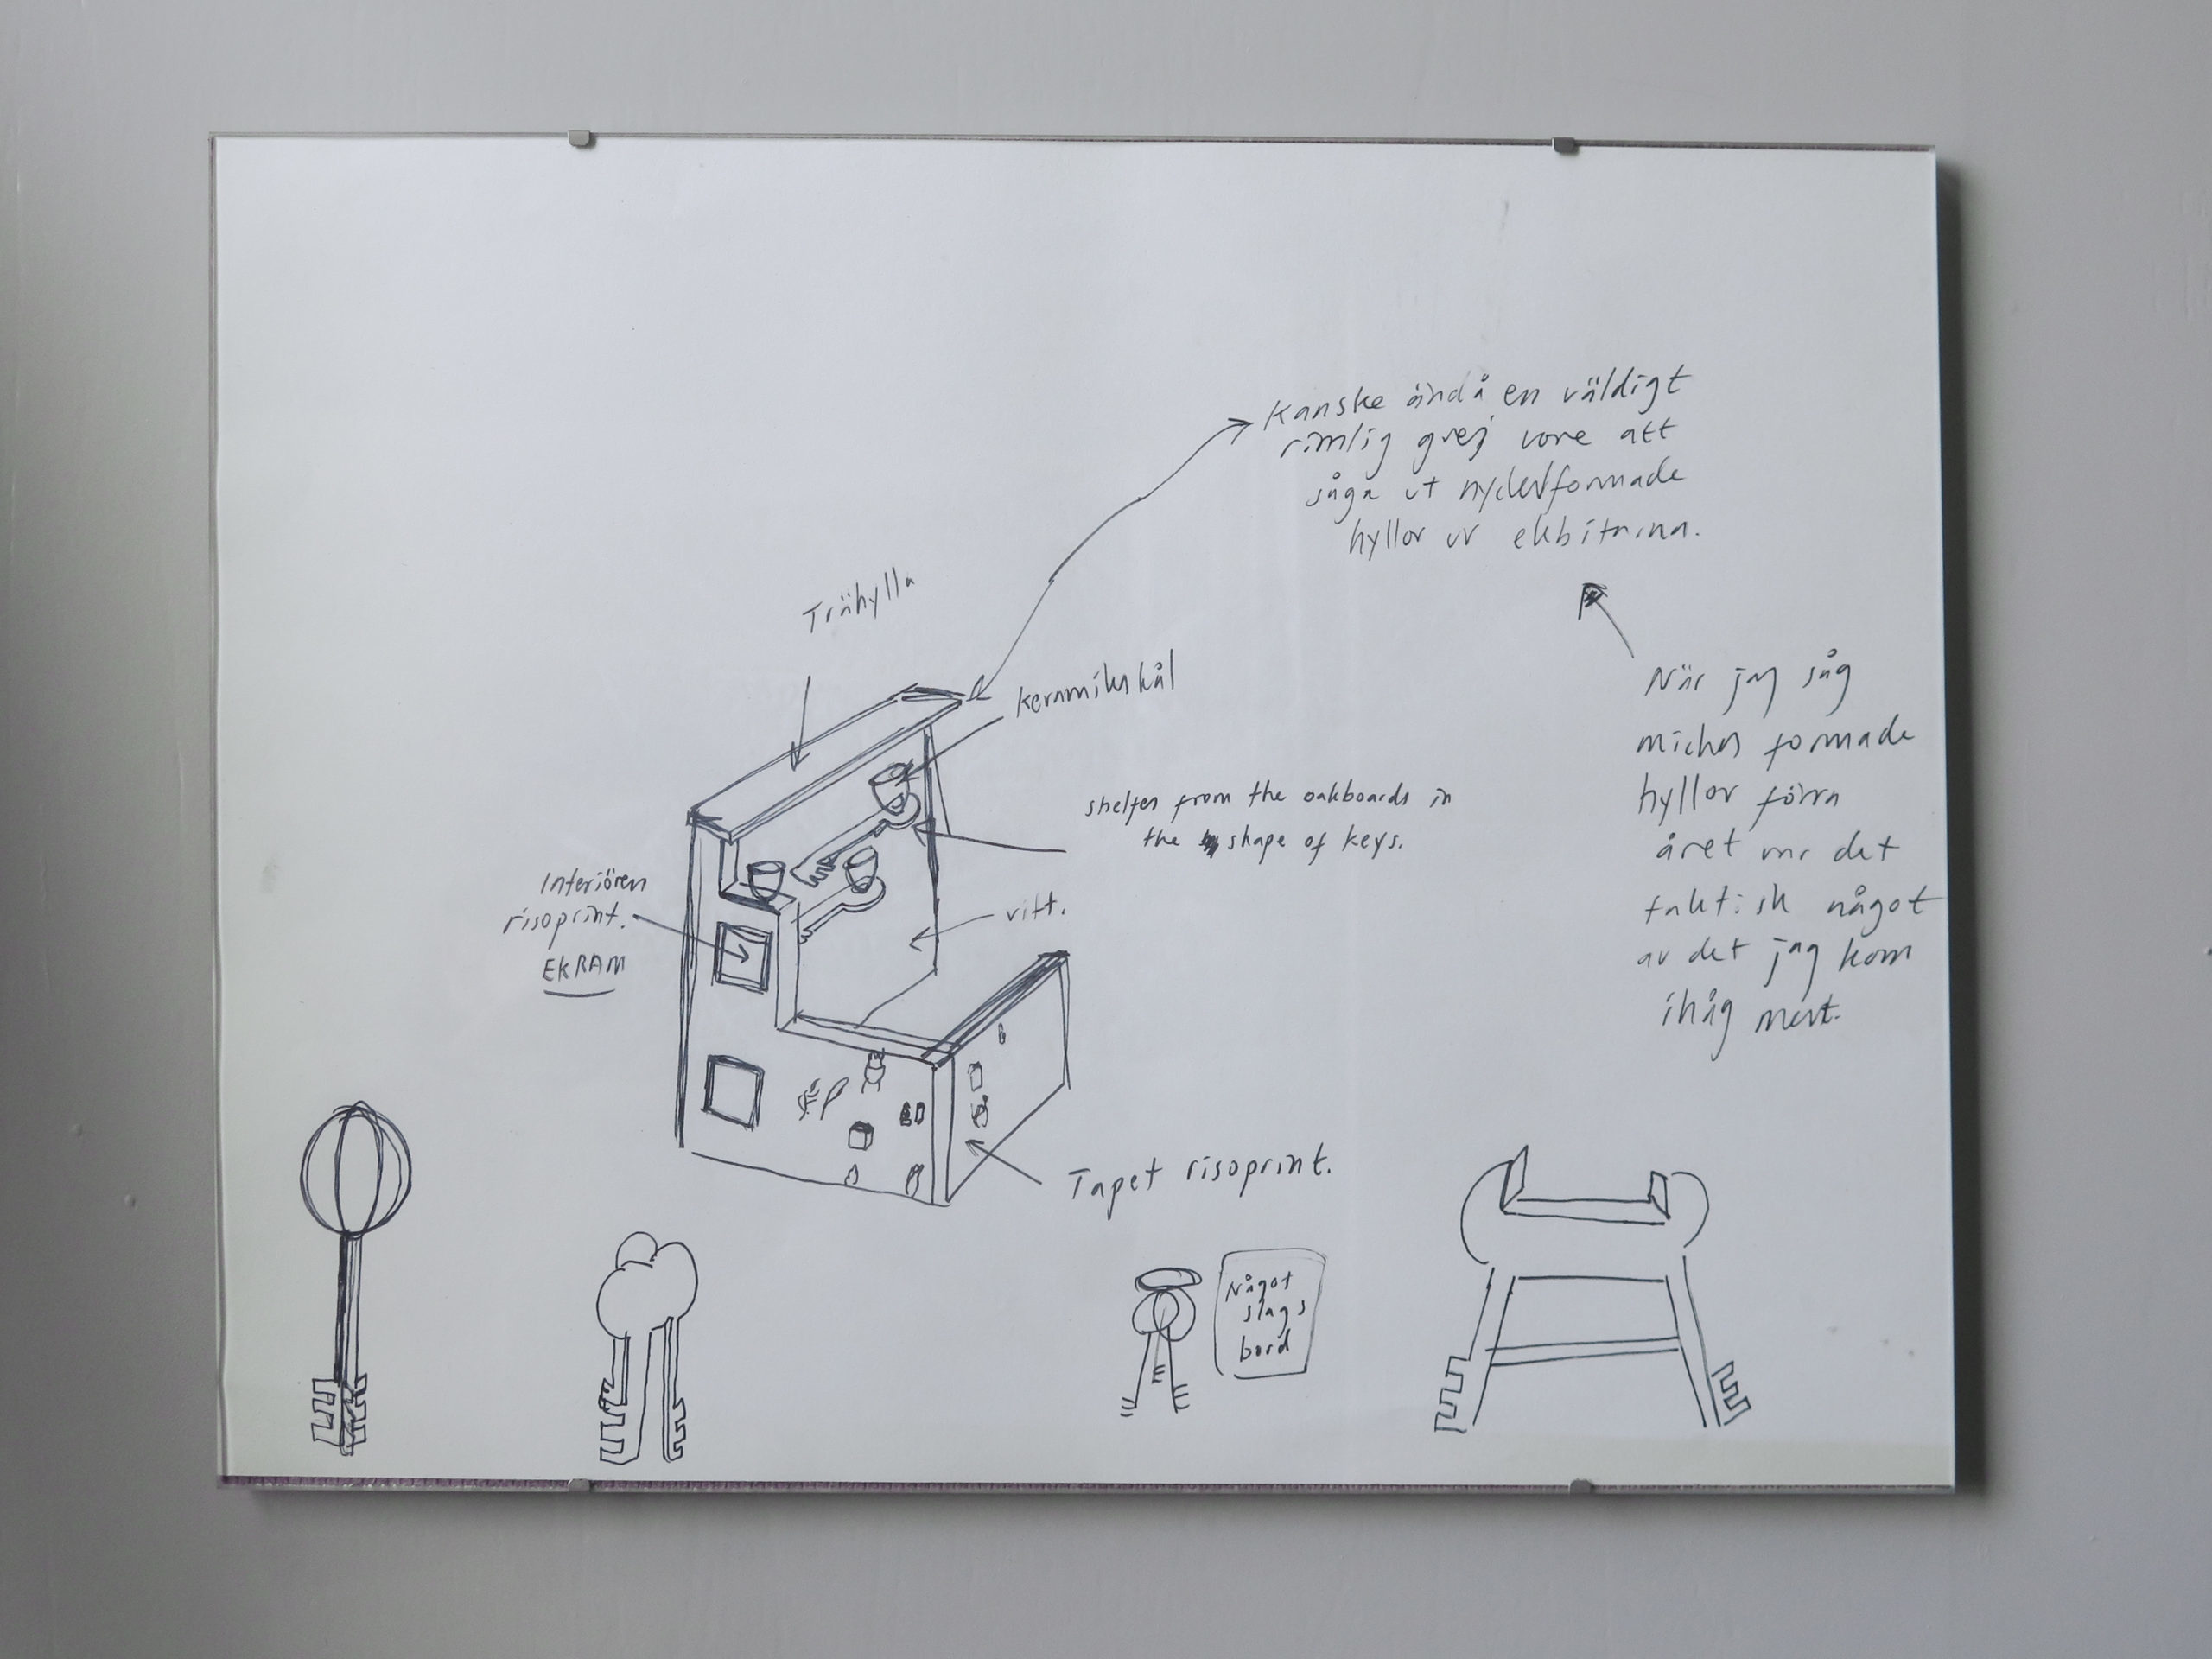 Kanske ändå en väldigt
rimlig grej vore att
såga ut nyckelformade
hyllor ur ekbitarna.
Trähylla
keramikskål
När jag såg
formade
hyllor förra
året var det
faktiskt något
av det jag kom
ihåg mest.
shelfes from the oakboards in
the shape of keys.
Interiören
risoprint.
EKRAM
vitt.
Tapet risoprint.
Något
slags
bord